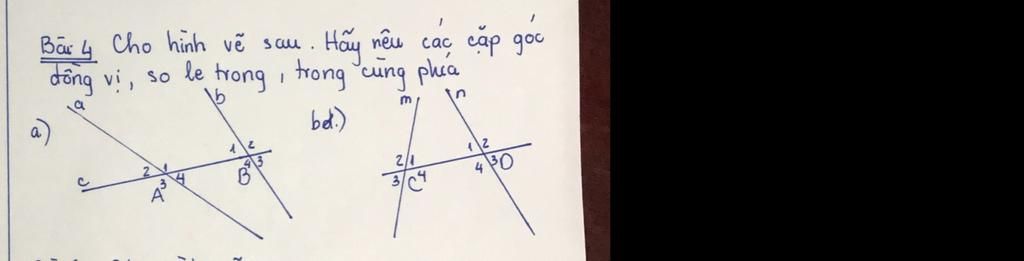 Bài 4 Cho hình vẽ sau. Hãy nêu các cặp góc
đồng vị, so le trong, trong cùng phía
a) a b c 2 1 3 4 A 1 2 4 3 B
bd.) m n 2 1 3 4 C 1 2 4 3 D